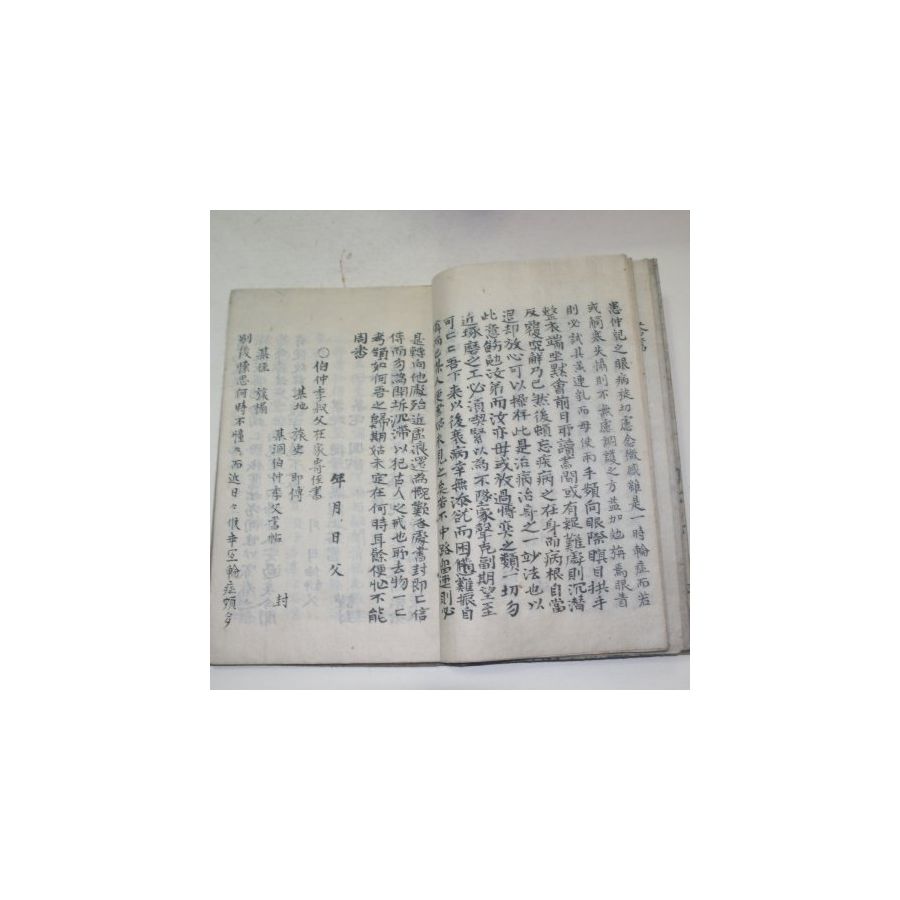 恙仲兒之眼病殊切慮念懺感雖是一時輪症而若
或觸寒失攝則不無慮調護之方益加勉旃為眼眚
則必試其黃連乳而母使兩手頻向眼際瞑目拱手
整衣端坐默會前日所讀書間或有艱難處則沉潛
反覆究解乃已然後頓忘疾病之在身而病根自當
退却放心可以操存此是治病治身之一妙法也以
此意勸勉汝弟而汝亦毋或放過博奕之類一切勿
近琢磨之工必須喫緊以為不墜家聲克副期望至
可仁仁吾下來以後衰病幸無添祟而困憊難振自
是轉向他處殆近虛浪還為慨歎書封即仁信
傳而勿為開坼沉滯以犯古人之戒也所去物一仁
考領如何吾之歸期姑未定在何時耳餘便忙不能
周悉
年 月 日 父
〇伯仲季叔父在家寄侄書
某地 旅史 即傳
某洞伯仲季父書帖 封
某侄 旅榻
別後悵思何時不懂而近日々候幸輪症頗多